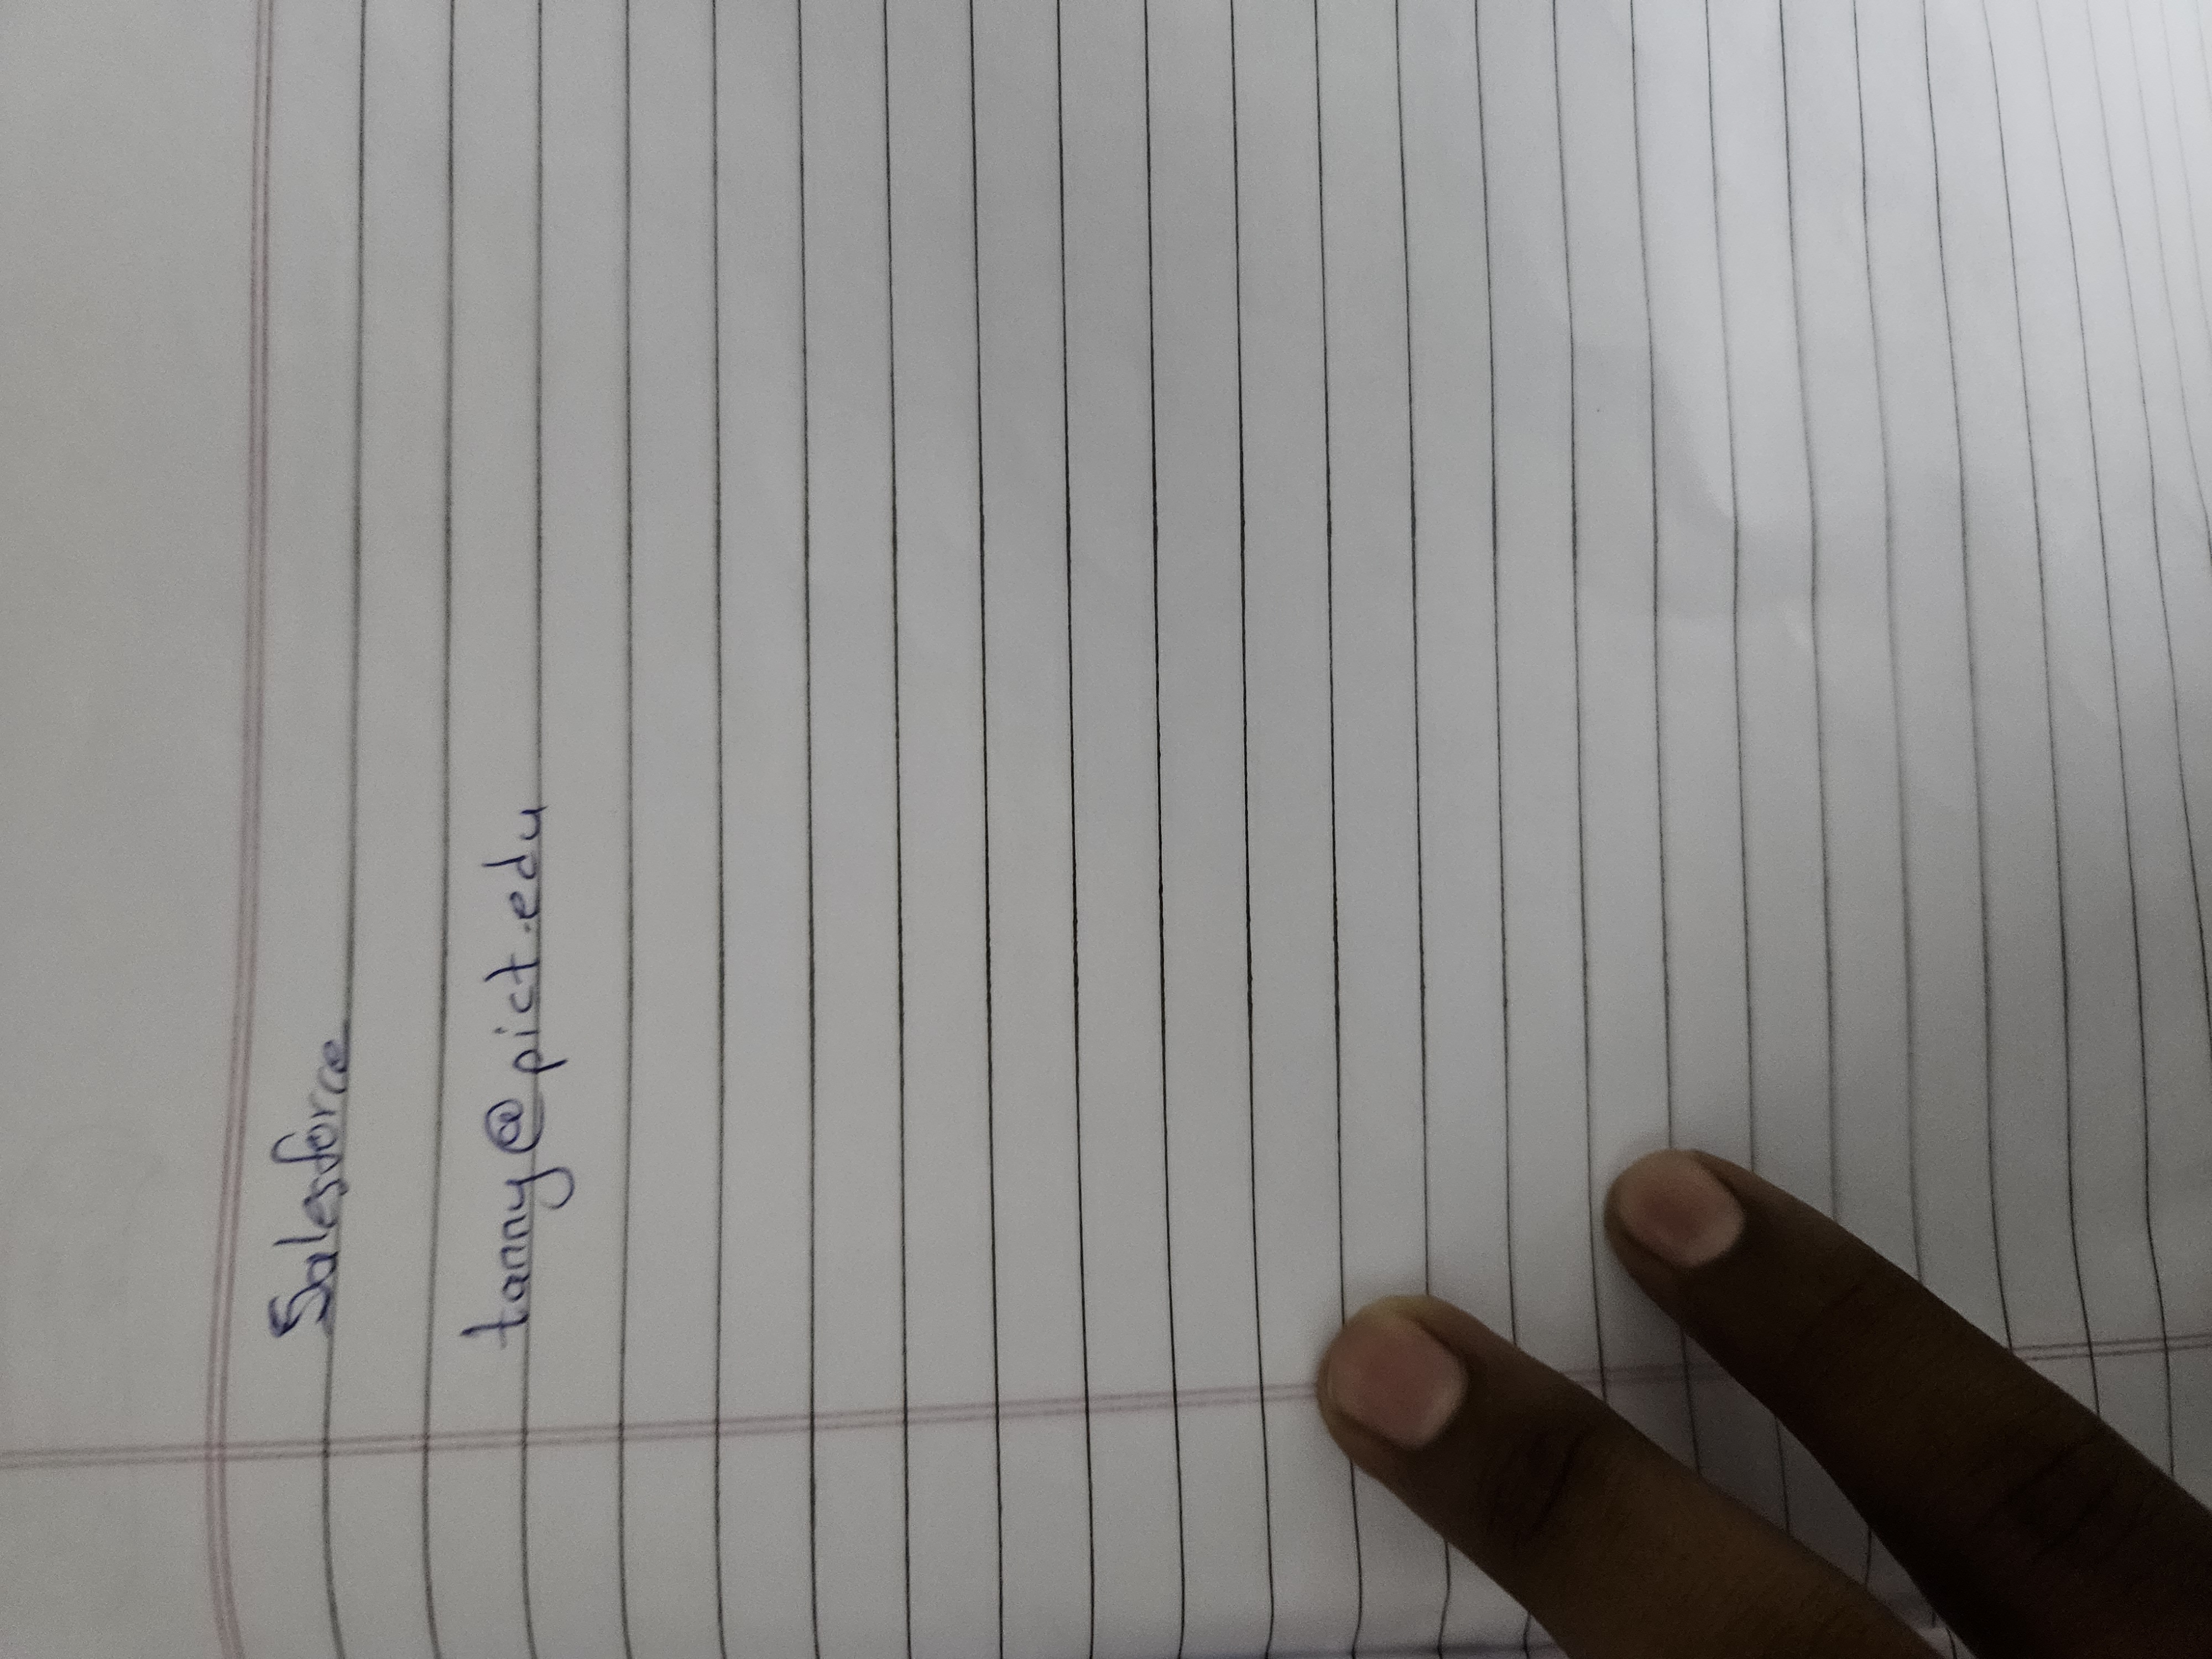 Salesforce
tanny@pict.edu